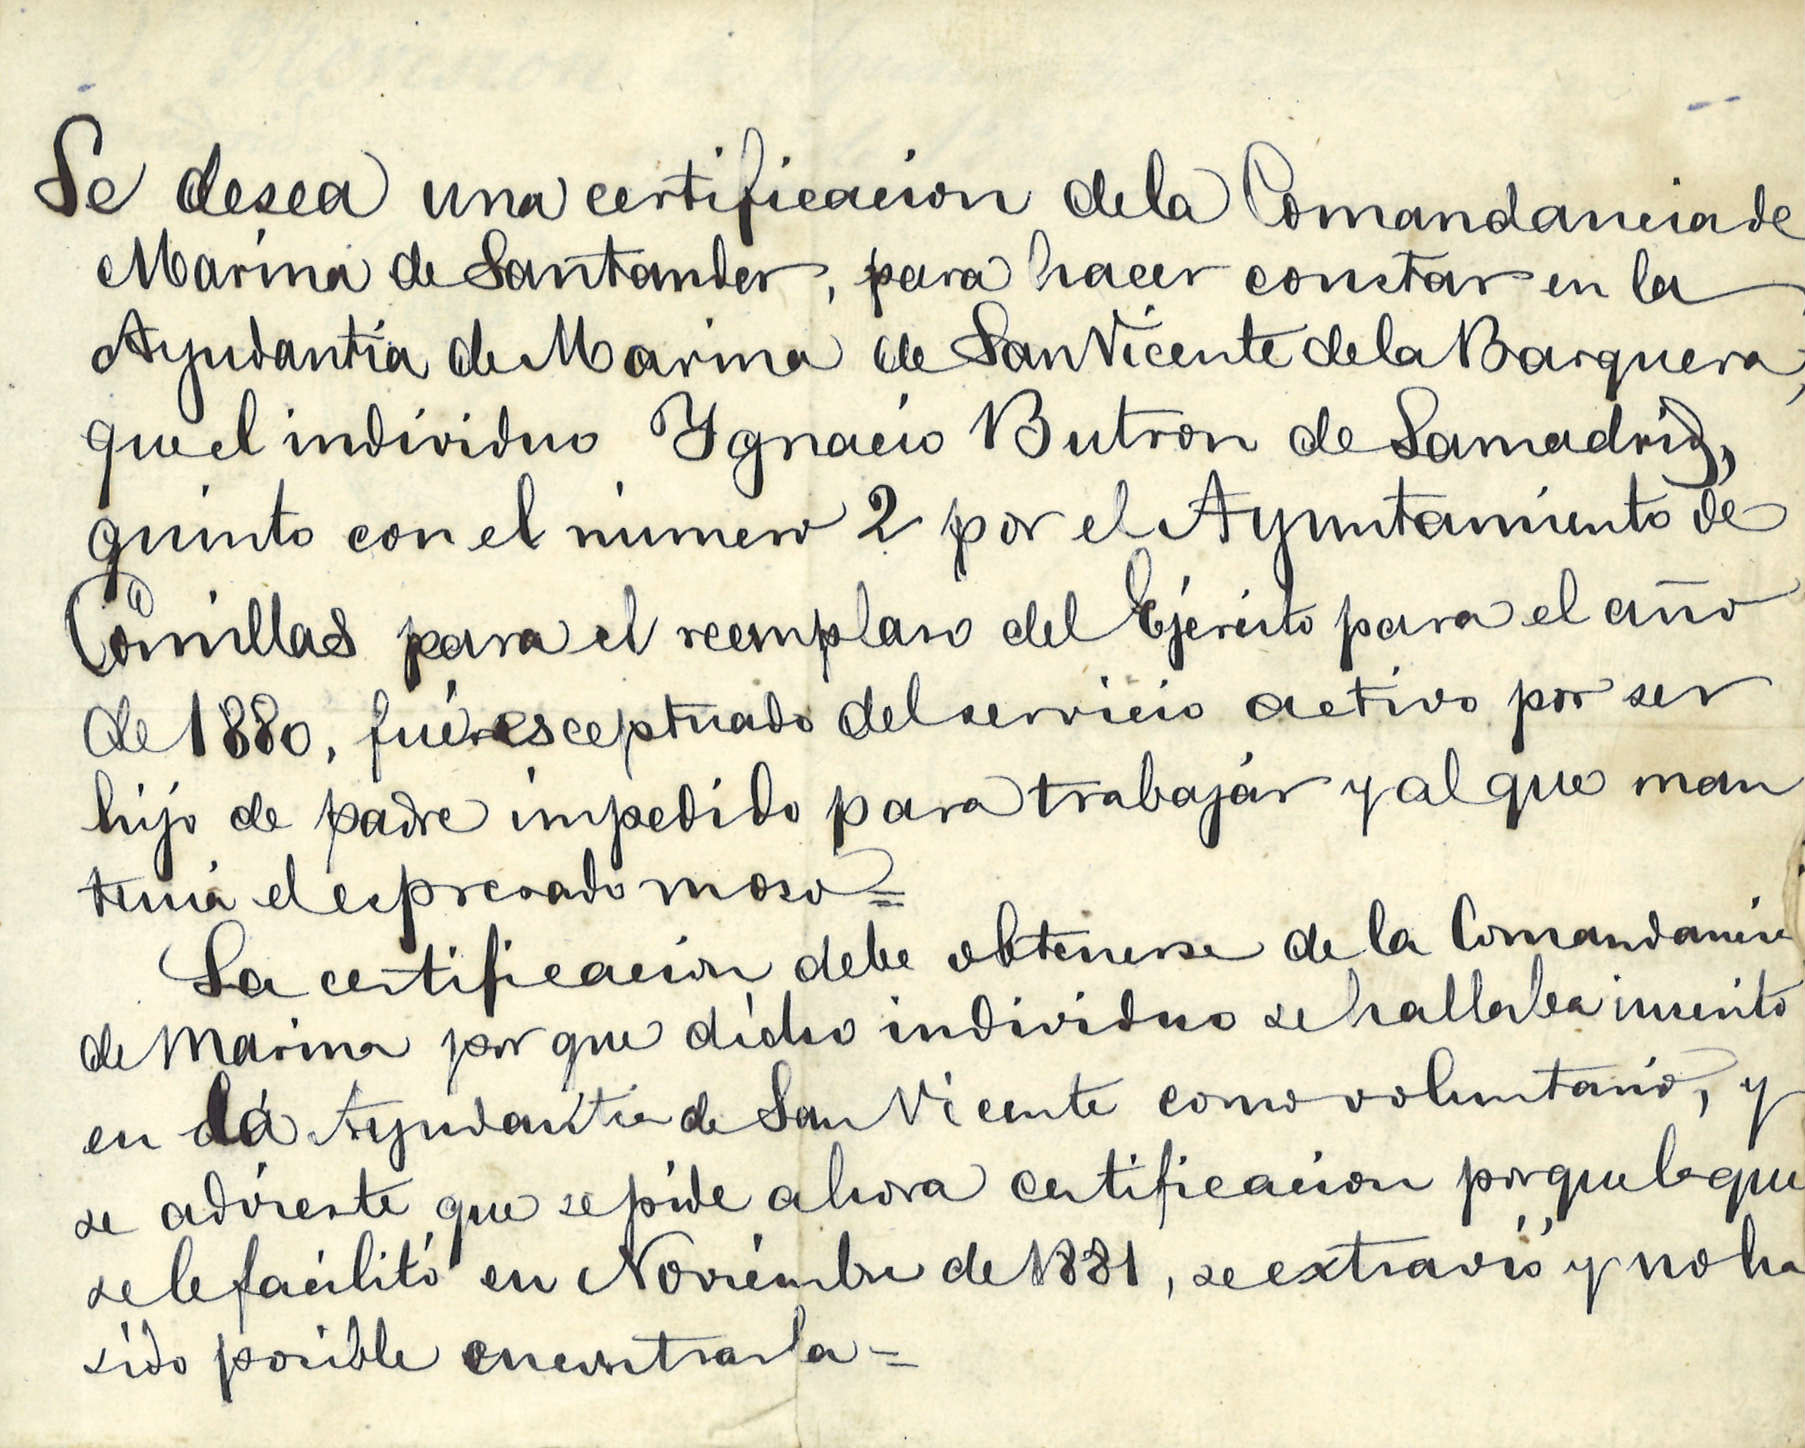 Se desea una certificacion de la Comandancia de
Marina de Santander, para hacer constar en la
Ayudantía de Marina de San Vicente de la Barquera,
que el individuo Ygnacio Butron de Lamadrid,
quinto con el número 2 por el Ayuntamiento de
Comillas para el reemplaso del Ejército para el año
de 1880, fué esceptuado del servicio activo por ser
hijo de padre impedido para trabajár y al que man
tenia el espresado moso=
La certificacion debe obtenerse de la Comandancia
de Marina por que dicho individuo se hallaba inscrito
en la Ayudantia de San Vicente como voluntario, y
se advierte que se pide ahora certificacion porque la que
se le facilitó en Noviembre de 1881, se extravió y no ha
sido posible encontrarla=